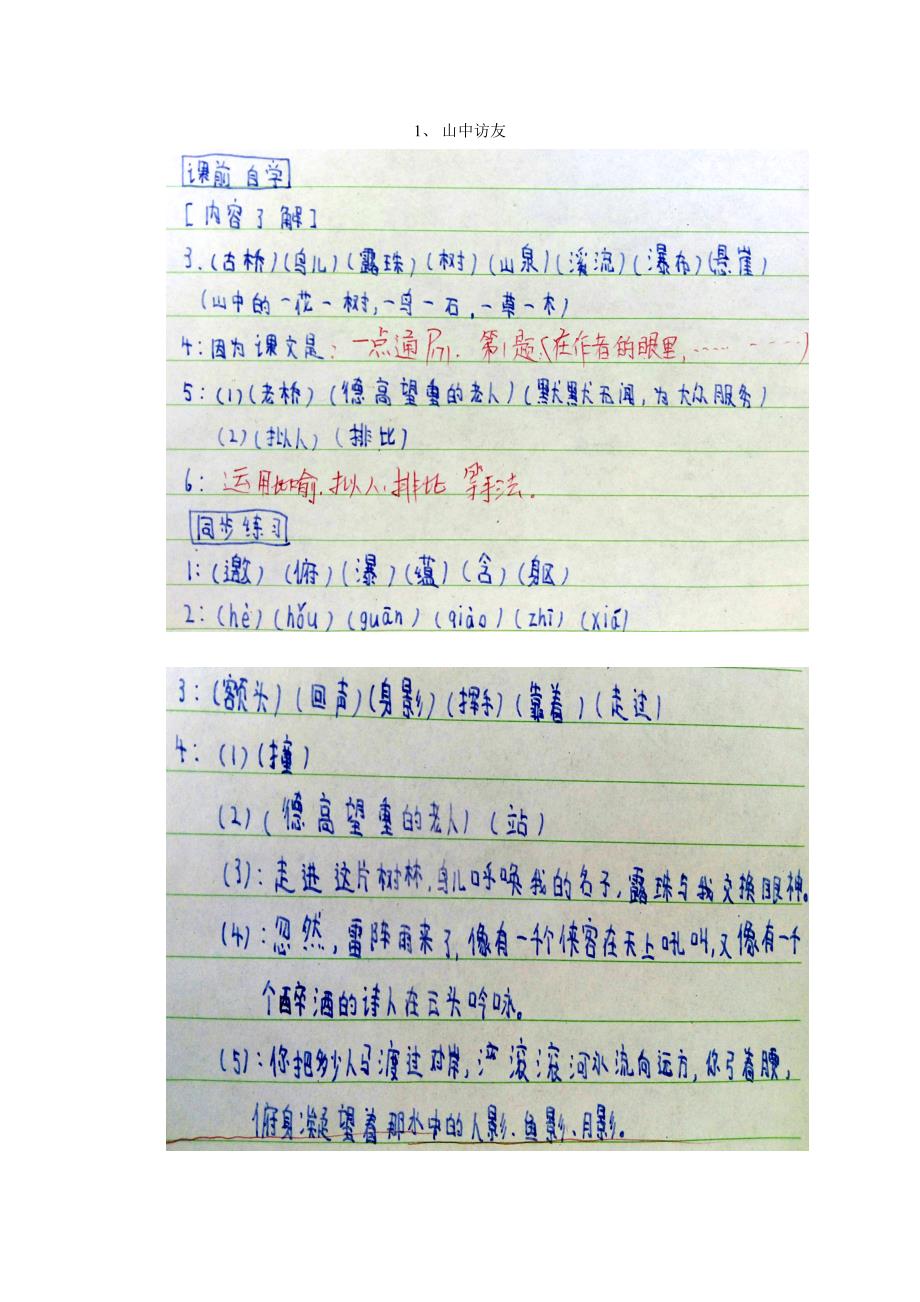 1、 山中访友
课前 自学
[内容了解]
3.(古桥)(鸟儿)(露珠)(树)(山泉)(溪流)(瀑布)(悬崖)
(山中的一花一树,一鸟一石,一草一木)
4:因为课文是:一点通P171. 第1题(在作者的眼里,…… ……)
5:(1)(老桥)(德高望重的老人)(默默无闻,为大众服务)
(2)(拟人)(排比)
6:运用比喻.拟人.排比 等手法。
同步练习
1:(邀)(俯)(瀑)(蕴)(含)(躯)
2:(hè)(hǒu)(guān)(qiào)(zhī)(xiá)
3:(额头)(回声)(身影)(挥手)(靠着)(走过)
4:(1)(撞)
(2)(德高望重的老人)(站)
(3):走进这片树林,鸟儿呼唤我的名子,露珠与我交换眼神。
(4):忽然,雷阵雨来了,像有一千个侠客在天上吼叫,又像有一千
个醉酒的诗人在云头吟咏。
(5):你把多少人马渡过对岸,滚滚河水流向远方,你弓着腰,
俯身凝望着那水中的人影、鱼影、月影。